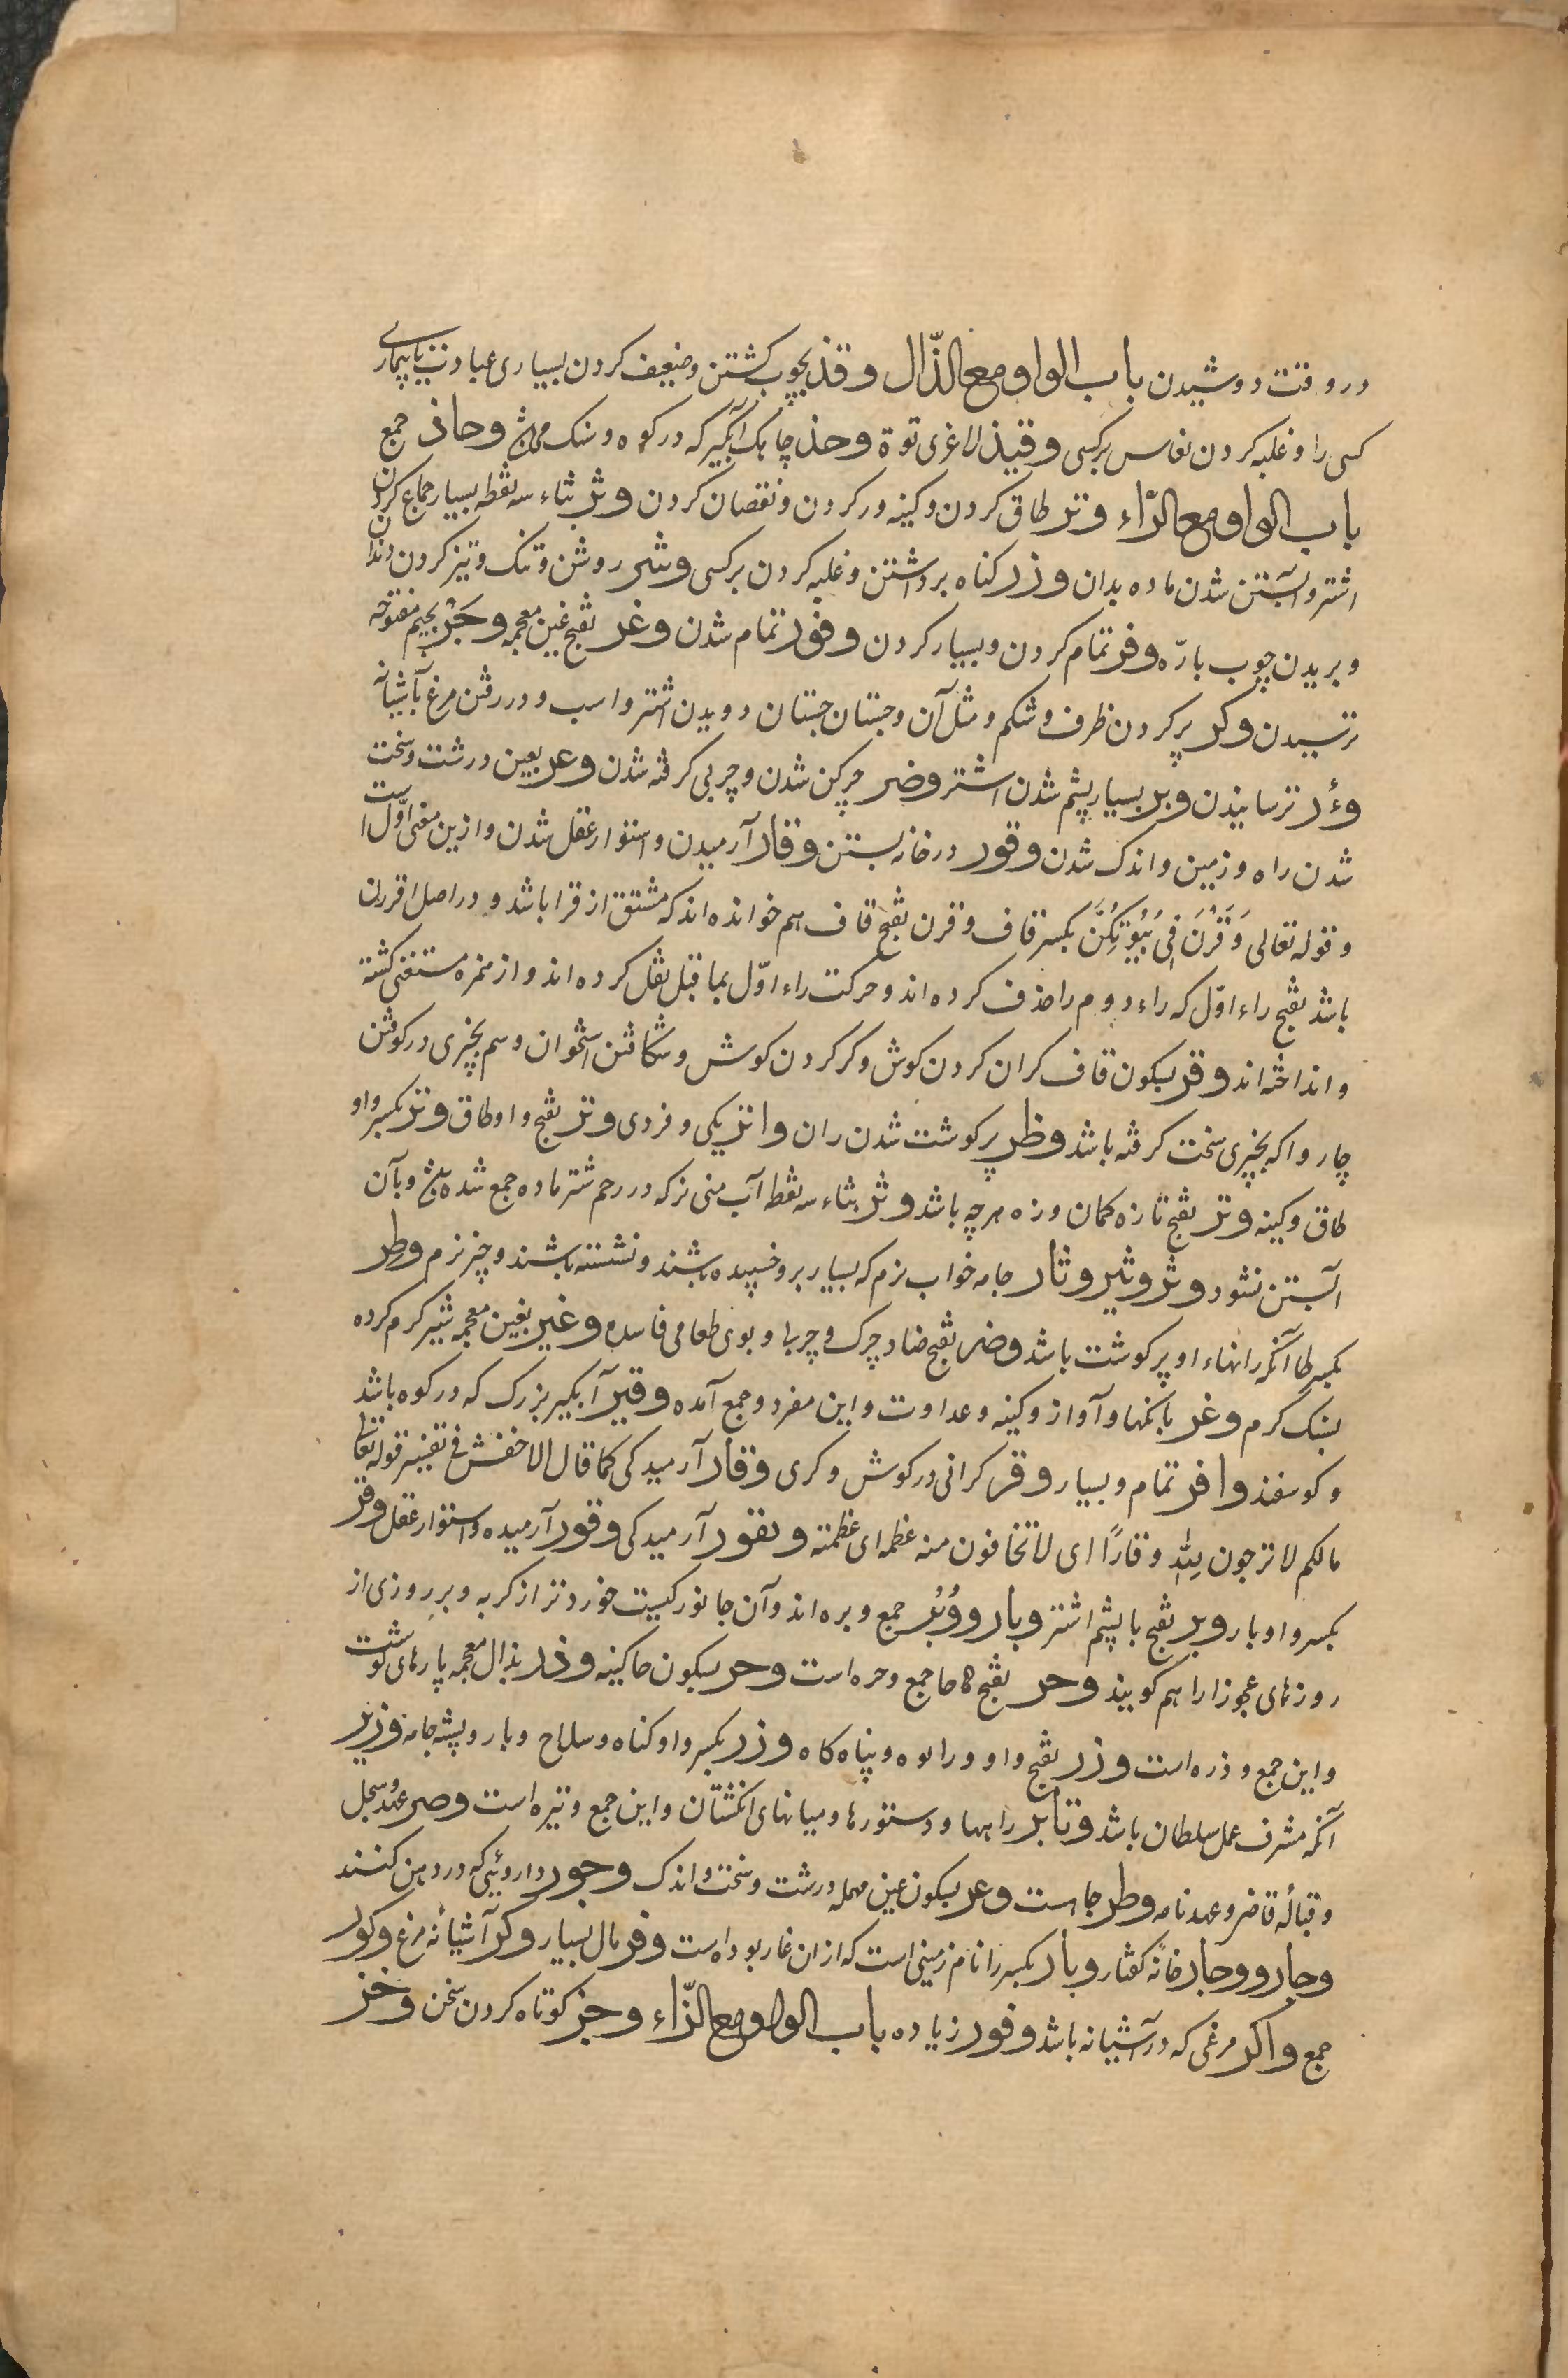 در وقت دوشیدن باب الواو مع الذّال وقذ بچوب کشتن و ضعیف کردن بسیاری عبادت یا بیماری
کسی را و غلبه کردن نعاس بر کسی وقیذ لاغری توة وحذ چاهک آبگیر که در کوه و سنک میباشد وحاذ جمع
باب الواو مع الرّاء وتر طاق کردن و کینه ور کردن و نقصان کردن وثر بثاء سه نقطه بسیار جماع کردن
اشتر و آبستن شدن ماده بدان وزر کناه برداشتن و غلبه کردن بر کسی وشر روشن و تنک و تیز کردن دندان
و بریدن چوب بارّه وفر تمام کردن و بسیار کردن وفور تمام شدن وغر بفتح غین معجمه وجَر بجیم مفتوحه
ترسیدن وکر پر کردن ظرف و شکم و مثل آن و جستان جستان دویدن اشتر و اسب و در رفتن مرغ بآشیانه
وءر ترسانیدن وبر بسیار پشم شدن اشتر وضر چرکن شدن و چربی کرفته شدن وعر بعین درشت و سخت
شدن راه و زمین و اندک شدن وقور در خانه بستن وقار آرمیدن و استوار عقل شدن و ازین معنی اوّل است
و قوله تعالی وَقَرْنَ فِی بُیُوتِکُنَّ بکسر قاف و قرن بفتح قاف هم خوانده اند که مشتق از قرا باشد و در اصل اقررن
باشد بفتح راء اوّل که راء دوم را حذف کرده اند و حرکت راء اوّل بما قبل نقل کرده اند و از همزه مستغنی کشته
و انداخته اند وقر بسکون قاف کران کردن کوش و کر کردن کوش و شکافتن استخوان و سم بچیزی در کوفتن
چاروا که بچیزی سخت کرفته باشد وظر پر کوشت شدن ران واتر یکی و فردی وتر بفتح واو طاق وتر بکسر واو
طاق و کینه وتر بفتح تا زه کمان و زه هر چه باشد وثر بثاء سه نقطه آب منی نر که در رحم شتر ماده جمع شده باشد و بآن
آبستن نشود وثر وثیر وثار جامه خواب نرم که بسیار برو خسپیده باشند و نشسته باشند و چیز نرم وطِر
بکسر طا آنکه رانهاء او پر کوشت باشد وضر بفتح ضاد چرک و چربا و بوی طعامی فاسده وغیر بغین معجمه شیر کرم کرده
بسنک کرم وغر بانکها و آواز و کینه و عداوت و این مفرد و جمع آمده وقیر آبکیر بزرک که در کوه باشد
و کوسفند وافر تمام و بسیار وقر کرانی در کوش و کری وقار آرمیدکی کما قال الاخفش فی تفسیر قوله تعا
مالکم لا ترجون لِلّٰهِ وقارًا ای لا تخافون منه عظمه ای عظمته وبقور آرمیدکی وقور آرمیده و استوار عقل وقر
بکسر واو بار وبر بفتح با پشم اشتر وبار ووُبُر جمع وبره اند و آن جانورکیست خوردتر از کربه و بر روزی از
روزهای عجوز را هم کویند وحر بفتح حا جمع وحره است وحر بسکون حا کینه وذر بذال معجمه پارهای کوشت
و این جمع وذره است وزر بفتح واو و را کوه و پناه کاه وزر بکسر واو کناه و سلاح و بار و پشته جامه وزیر
آنکه مشرف عمل سلطان باشد وتایر راهها و دستورها و میانهای انکشتان و این جمع وتیره است وصر عهد و سجل
و قبالهٔ قاضی و عهد نامه وطر حاجت وعر بسکون عین مهمله درشت و سخت و اندک وجور داروئی که در دهن کنند
وجار ووجار خانهٔ کفتار وبار بکسر را نام زمینی است که از ان عار بوده است وفر مال بسیار وکر آشیانهٔ مرغ وکور
جمع واکر مرغی که در آشیانه باشد وفور زیاده باب الواو مع الزّاء وجز کوتاه کردن سخن وخز